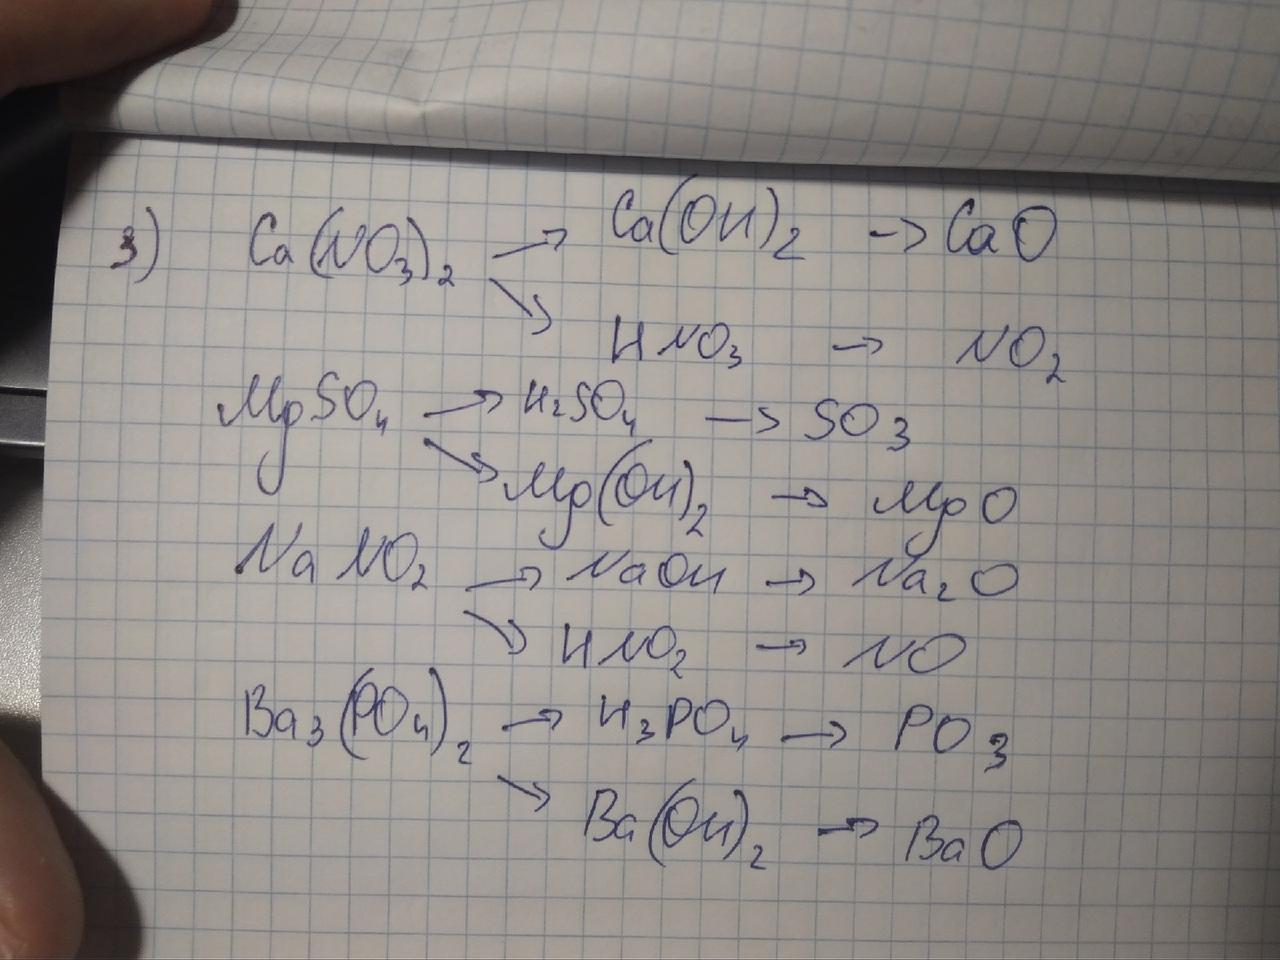 3) Ca(NO₃)₂ → Ca(OH)₂ → CaO
↘ HNO₃ → NO₂
MgSO₄ → H₂SO₄ → SO₃
↘ Mg(OH)₂ → MgO
NaNO₂ → NaOH → Na₂O
↘ HNO₂ → NO
Ba₃(PO₄)₂ → H₃PO₄ → PO₃
↘ Ba(OH)₂ → BaO